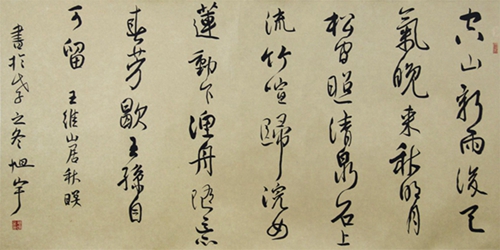 空山新雨後天
氣晚來秋明月
松間照清泉石上
流竹喧歸浣女
蓮動下漁舟隨意
春芳歇王孫自
可留 王維山居秋暝
書於戊子之冬旭宇